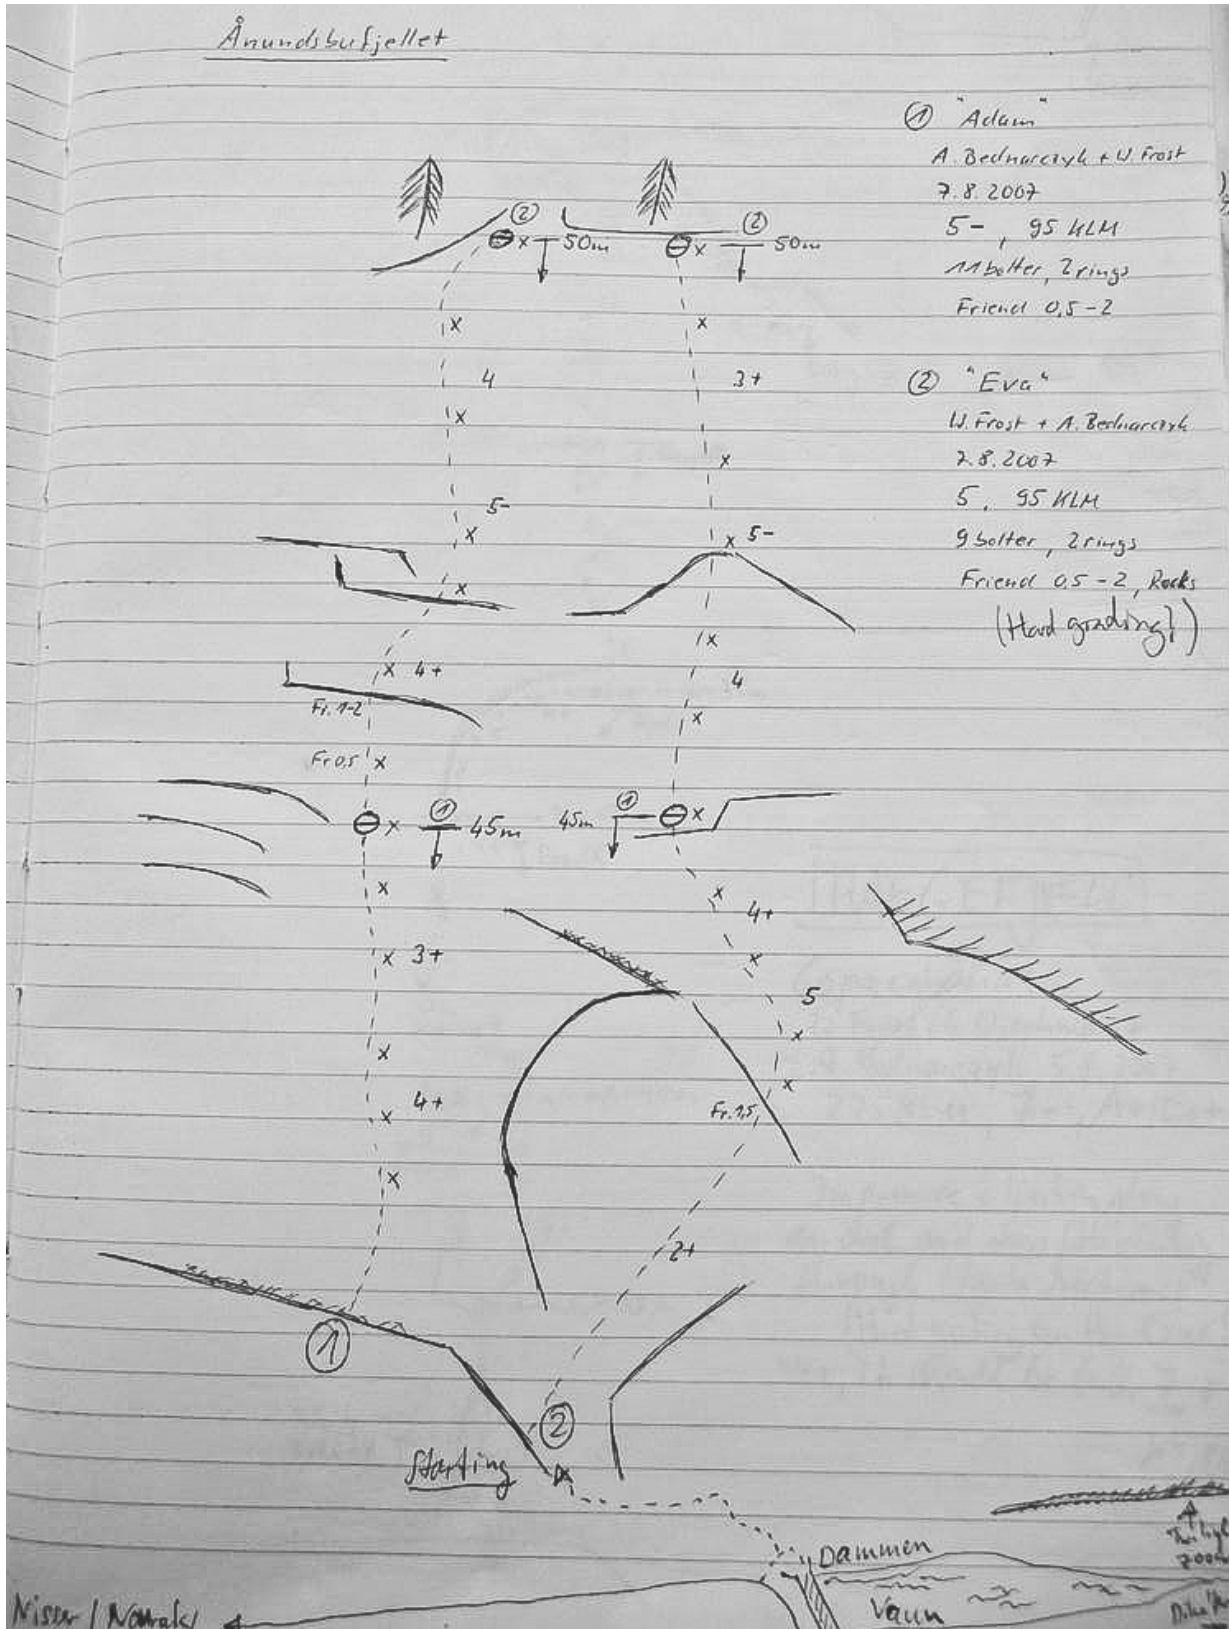 Ånundsbufjellet
① "Adam"
A. Bednarczyk + W. Frost
7.8.2007
5-, 95 KLM
11 bolter, 2 rings
Friend 0,5-2
② "Eva"
W. Frost + A. Bednarczyk
7.8.2007
5, 95 KLM
9 bolter, 2 rings
Friend 0,5-2, Rocks
(Hard grading!)
② 50m
② 50m
4
3+
5-
5-
4+
4
Fr. 1-2
Fr 0,5
① 45m
45m ①
4+
3+
5
4+
Fr. 1,5
2+
①
②
Starting
Dammen
Vaun
Nisser /